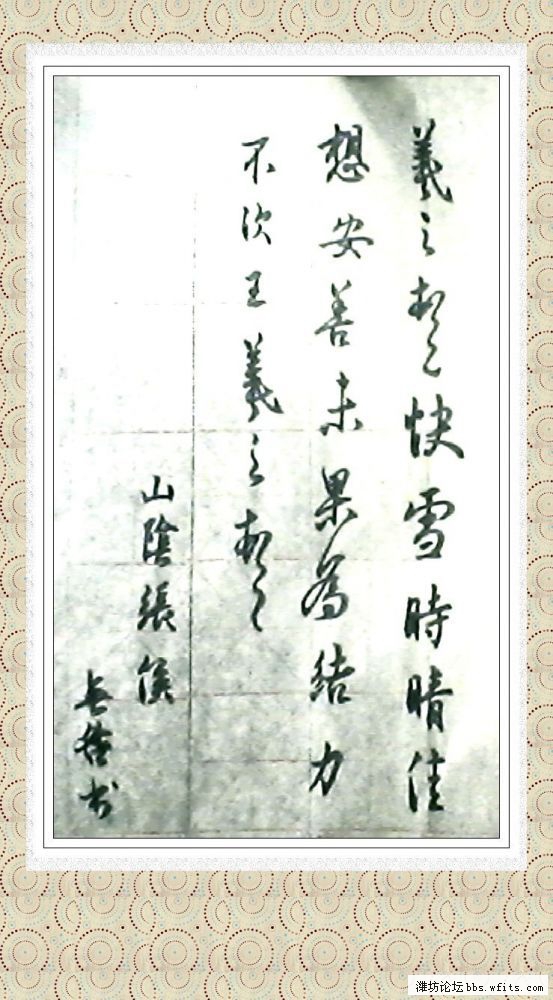 羲之頓首快雪時晴佳
想安善未果為結力
不次王羲之頓首
山陰張侯
书
潍坊论坛bbs.wfits.com